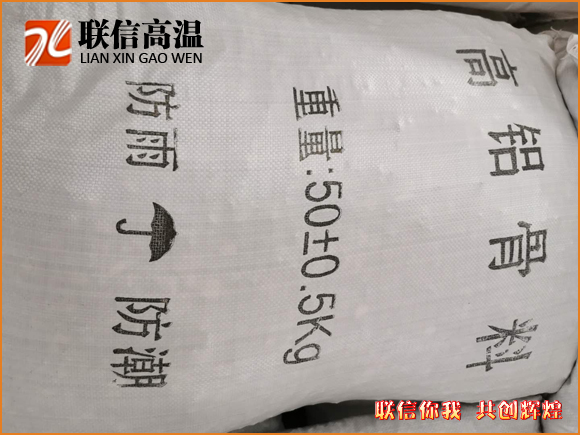 联信高温
LIAN XIN GAO WEN
高铝骨料
重量:50±0.5Kg
防雨 防潮
联信你我 共创辉煌